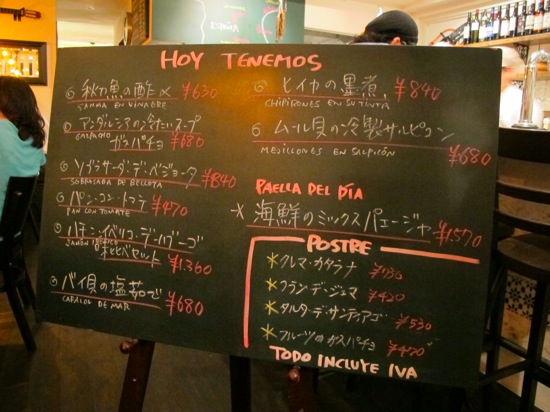 HOY TENEMOS
秋刀魚の酢〆 ¥630
SANMA EN VINAGRE
アンダルシアの冷たいスープ
GAZPACHO ガスパチョ ¥680
ソブラサーダ・デ・ベジョータ
SOBRASADA DE BELLOTA ¥840
パン・コン・トマテ ¥470
PAN CON TOMATE
ハモン・イベリコ・デ・ハブーゴ
JAMON IBERICO
¥1.360
バイ貝の塩茹で ¥680
CARACOL DE MAR
ヒイカの墨煮 ¥840
CHIPIRONES EN SU TINTA
ムール貝の冷製サルピコン
MEJILLONES EN SALPICÓN ¥680
PAELLA DEL DÍA
海鮮のミックスパエージャ ¥1.570
POSTRE
クレマ・カタラナ
フラン・デ・ジェマ ¥420
タルタ・デ・サンティアゴ ¥530
フルーツのガスパチョ ¥470
TODO INCLUTE IVA